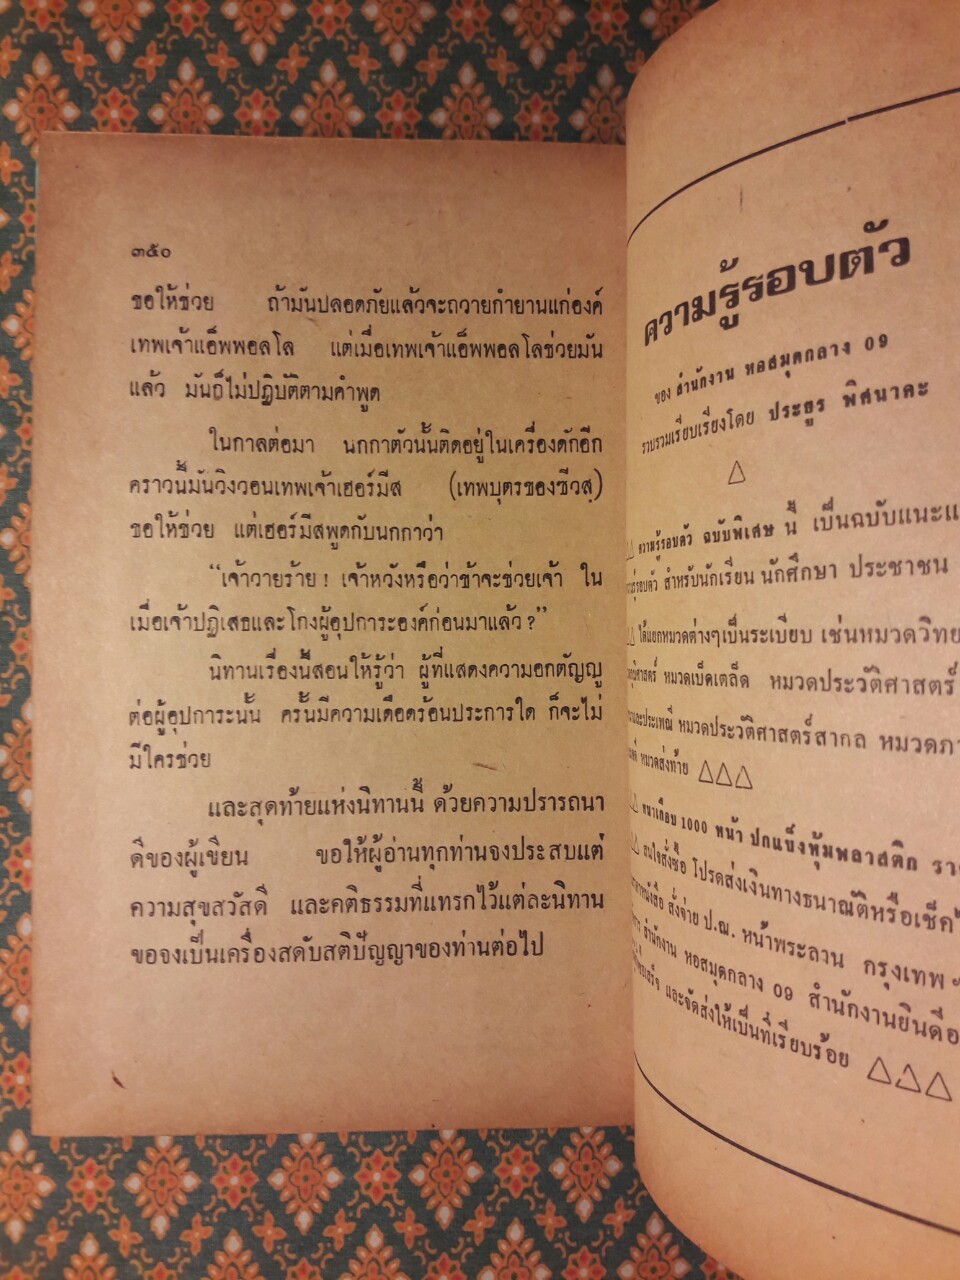 ๓๕๐
ขอให้ช่วย ถ้ามันปลอดภัยแล้วจะถวายกำยานแก่องค์
เทพเจ้าแอ็พพอลโล แต่เมื่อเทพเจ้าแอ็พพอลโลช่วยมัน
แล้ว มันก็ไม่ปฏิบัติตามคำพูด
ในกาลต่อมา นกกาตัวนั้นติดอยู่ในเครื่องดักอีก
คราวนี้มันวิงวอนเทพเจ้าเฮอร์มีส (เทพบุตรของซีวสฺ)
ขอให้ช่วย แต่เฮอร์มีสพูดกับนกกาว่า
“เจ้าวายร้าย! เจ้าหวังหรือว่าข้าจะช่วยเจ้า ใน
เมื่อเจ้าปฏิเสธและโกงผู้อุปการะองค์ก่อนมาแล้ว?”
นิทานเรื่องนี้สอนให้รู้ว่า ผู้ที่แสดงความอกตัญญู
ต่อผู้อุปการะนั้น ครั้นมีความเดือดร้อนประการใด ก็จะไม่
มีใครช่วย
และสุดท้ายแห่งนิทานนี้ ด้วยความปรารถนา
ดีของผู้เขียน ขอให้ผู้อ่านทุกท่านจงประสบแต่
ความสุขสวัสดี และคติธรรมที่แทรกไว้แต่ละนิทาน
ขอจงเป็นเครื่องสดับสติปัญญาของท่านต่อไป
ความรู้รอบตัว
ของ สำนักงาน หอสมุดกลาง 09
รวบรวมเรียบเรียงโดย ประธูร พิศนาคะ
△
ความรู้รอบตัว ฉบับพิเศษ นี้ เป็นฉบับแนะแ
สำหรับนักเรียน นักศึกษา ประชาชน
ได้แยกหมวดต่างๆเป็นระเบียบ เช่นหมวดวิทย
หมวดเบ็ดเตล็ด หมวดประวัติศาสตร์
หมวดประวัติศาสตร์สากล หมวดภา
หมวดส่งท้าย △△△
หนาเกือบ 1000 หน้า ปกแข็งหุ้มพลาสติก รา
สนใจสั่งซื้อ โปรดส่งเงินทางธนาณัติหรือเช็ค
สั่งจ่าย ป.ณ. หน้าพระลาน กรุงเทพ
สำนักงาน หอสมุดกลาง 09 สำนักงานยินดี
และจัดส่งให้เป็นที่เรียบร้อย △△△